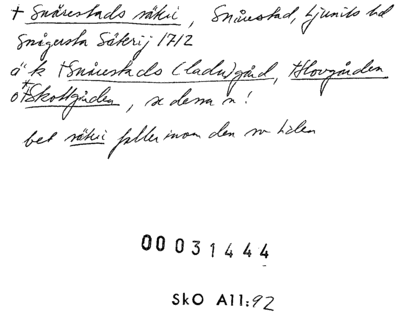 † Snårestads säteri, Snårestad, Ljunits hd
Snögersta Säterij 1712
ä. k †Snårestads (ladu)gård, †Hovgården
o †Skottgården, se dessa n!
bet säteri faller inom den sv tiden
00031444
SkO A11:92